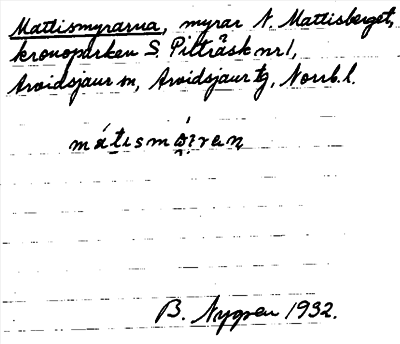 Mattismyrarna, myrar N. Mattisberget,
kronoparken S. Pilträsk nr 1,
Arvidsjaur sn, Arvidsjaur tg, Norrb. l.
B. Nygren 1932.